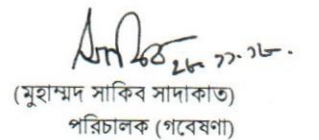 ২৮.১১.১৮.
(মুহাম্মদ সাকিব সাদাকাত)
পরিচালক (গবেষণা)